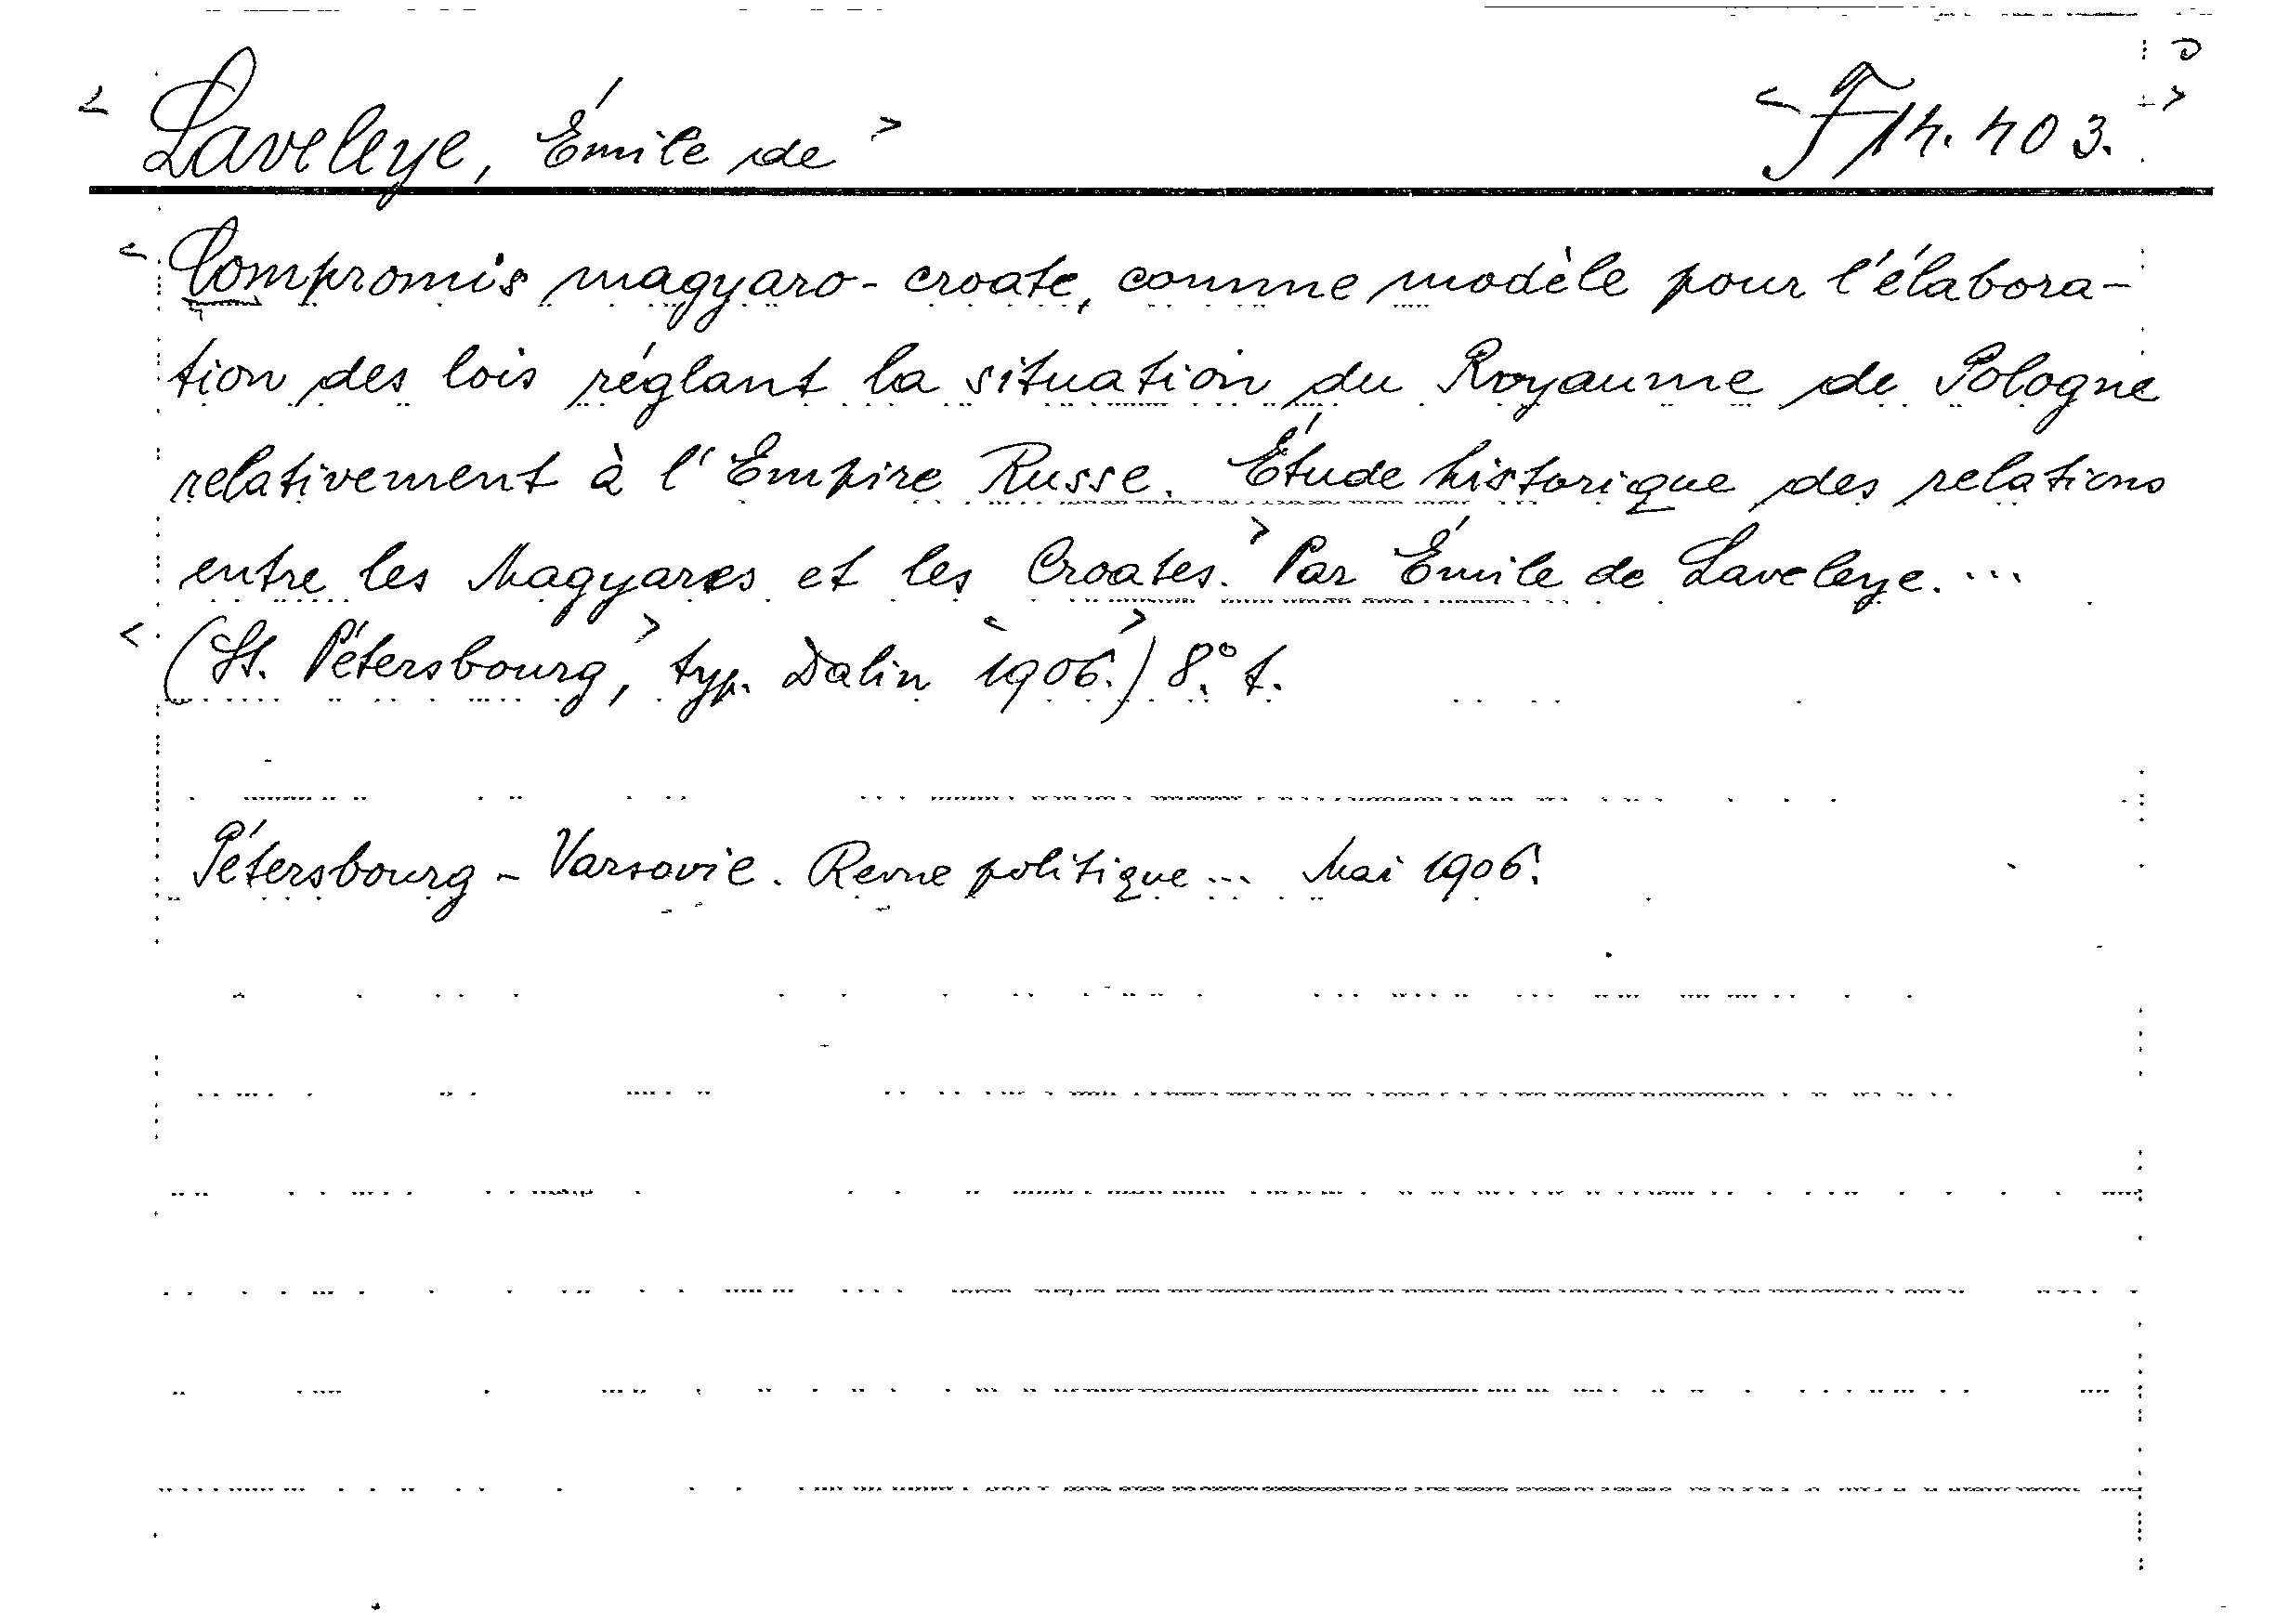 <Laveleye, Émile de> <F 14.403.>
<Compromis magyaro-croate, comme modèle pour l'élabora-
tion des lois réglant la situation du Royaume de Pologne
relativement à l'Empire Russe. Étude historique des relations
entre les Magyares et les Croates.> Par Émile de Laveleye. ...
<(St. Pétersbourg,> typ. Dalin <1906.>) 8.° t.
Pétersbourg - Varsovie. Revue politique ... Mai 1906.